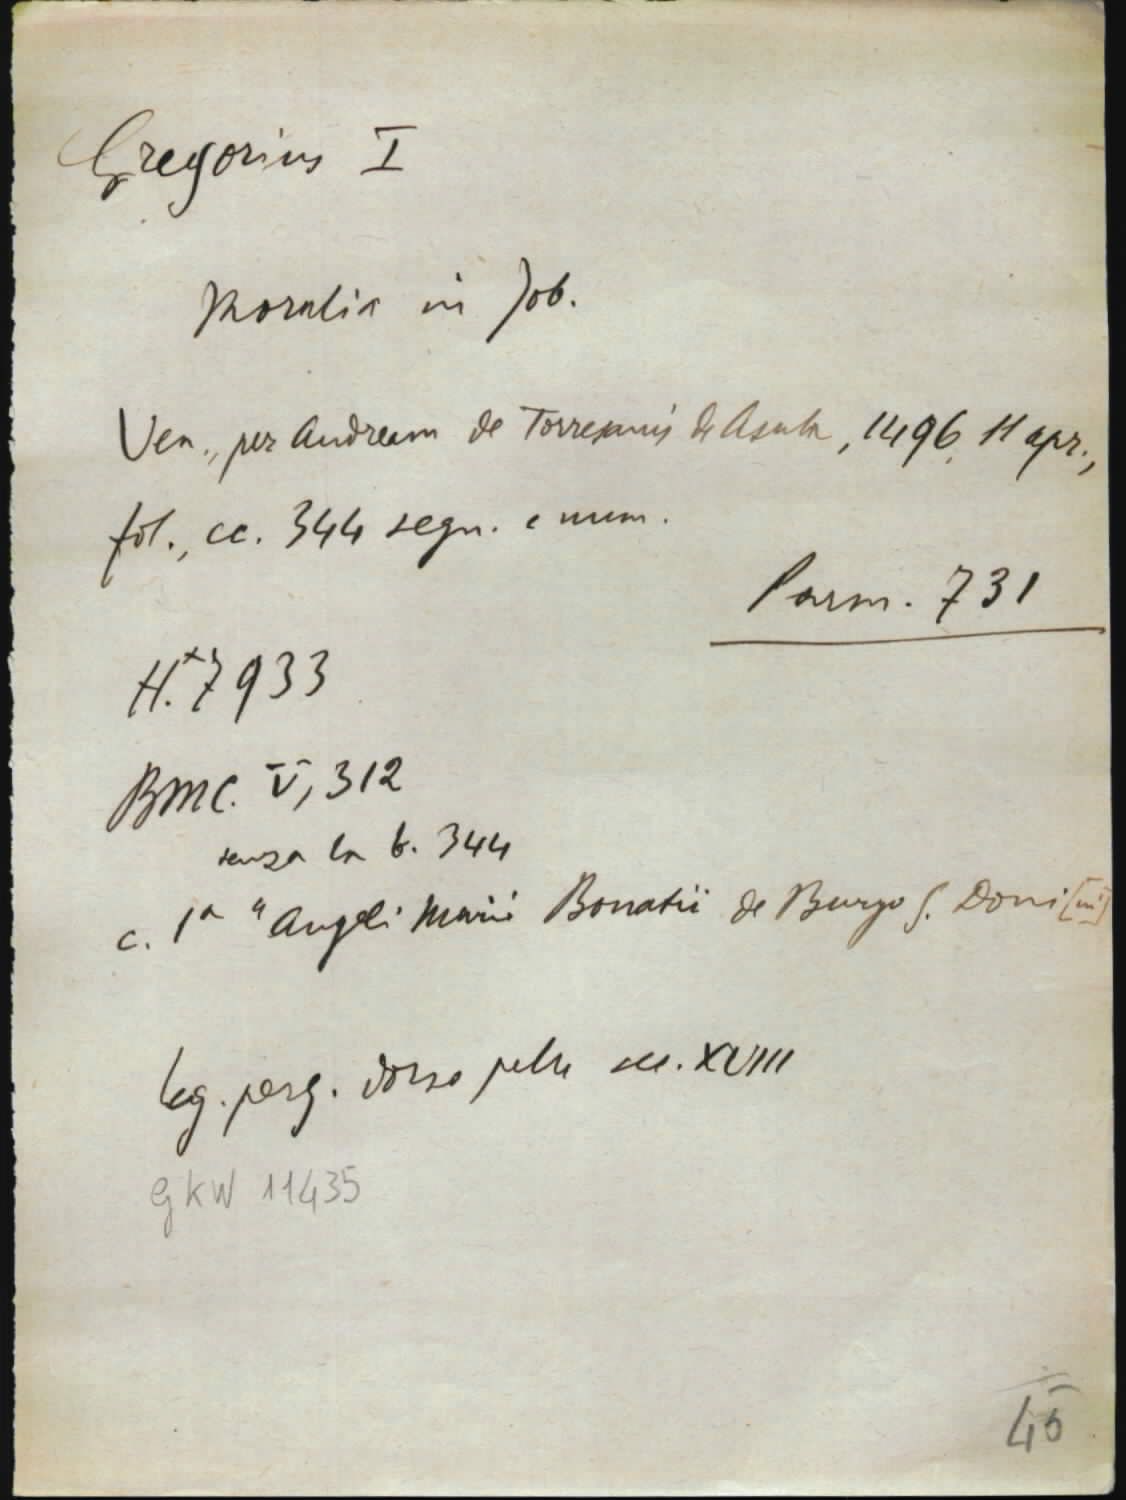 Gregorius I
Moralia in Job.
Ven., per Andream de Torresanis de Asula, 1496, 11 apr.,
fol., cc. 344 segn. e num.
Parm. 731
H.+7933
BMC. V, 312
senza la b. 344
c. 1a "Angeli Marii Bonatii de Burgo S. Doni[ni]
leg. perg. dorso pelle sec. XVIII
GKW 11435